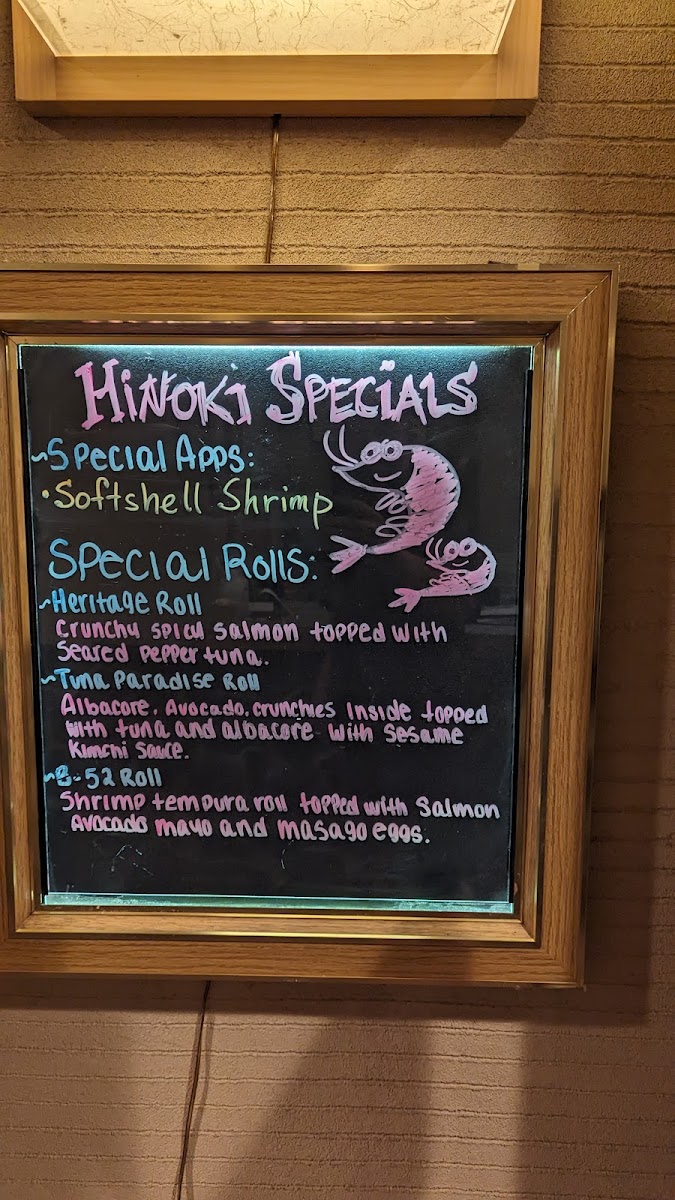 Hinoki Specials
~Special Apps:
•Softshell Shrimp
Special Rolls:
~Heritage Roll
Crunchy spicy salmon topped with
Seared pepper tuna.
~Tuna Paradise Roll
Albacore, Avocado, crunchies inside topped
with tuna and albacore with Sesame
Kimchi Sauce.
~B-52 Roll
Shrimp tempura roll topped with Salmon
Avocado mayo and masago eggs.